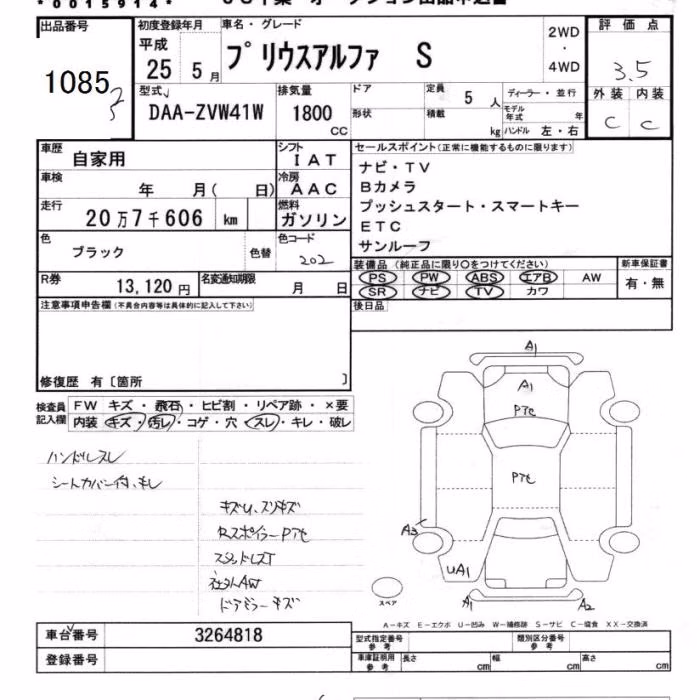 *0015914*
出品番号 初度登録年月 車名・グレード 2WD ・ 4WD 評価点
1085 平成 25 5月 プリウスアルファ S 3.5
型式 排気量 ドア 定員 5人 ディーラー・並行 外装 内装
DAA-ZVW41W 1800 CC 形状 積載 kg モデル年式 年 C C
ハンドル 左・右
車歴 自家用 シフト IAT セールスポイント(正常に機能するものに限ります)
車検 年 月( 日) 冷房 AAC ナビ・TV
Bカメラ
走行 20万7千606 km 燃料 ガソリン プッシュスタート・スマートキー
ETC
色 ブラック 色替 色コード 202 サンルーフ
装備品(純正品に限り○をつけてください) 新車保証書
R券 13,120円 名変通知期限 月 日 PS PW ABS エアB AW 有・無
SR ナビ TV カワ
注意事項申告欄(不具合内容等は具体的に記入して下さい) 後日品
修復歴 有〔箇所 〕
検査員記入欄 FW キズ・飛石・ヒビ割・リペア跡・×要
内装 キズ・汚レ・コゲ・穴・スレ・キレ・破レ
ハンドルスレ
シートカバー付、キレ
キズU、スリキズ
RスポイラーPTセ
スタッドレスT
社外AW
ドアミラーキズ
A1
A1
PTセ
PTセ
A3
UA1
A1 A2
スペア
A-キズ E-エクボ U-凹み W-補修跡 S-サビ C-腐食 XX-交換済
車台番号 3264818 型式指定番号 参考 類別区分番号 参考
登録番号 車庫証明用 参考 長さ cm 幅 cm 高さ cm